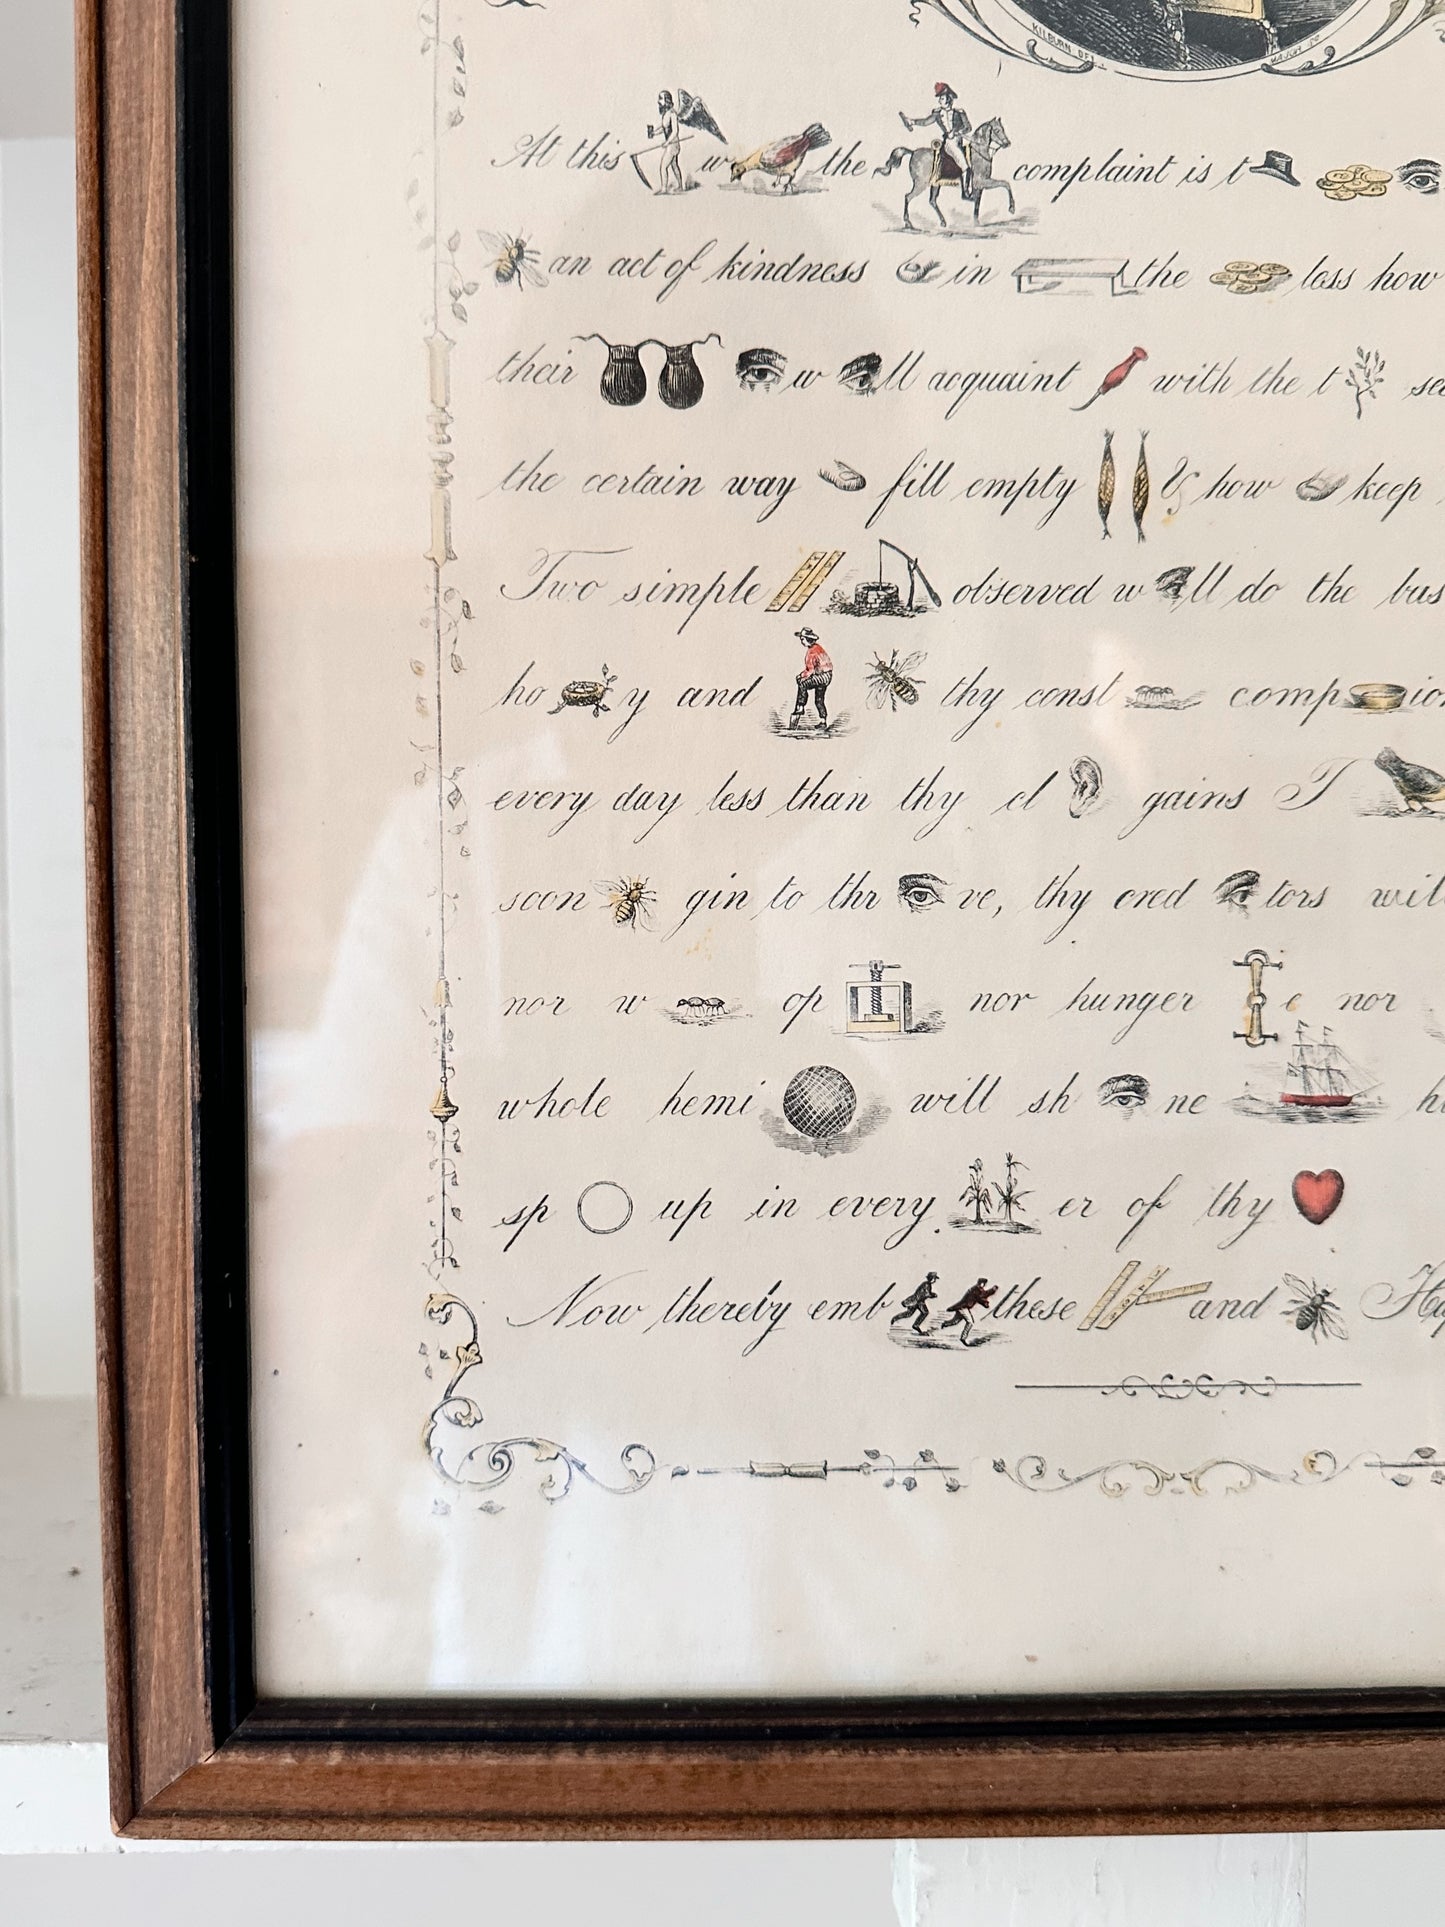 KILBURN DEL.
At this w the complaint is t
an act of kindness in the less how
their w ll acquaint with the t
the certain way fill empty & how keep
Two simple observed w ll do the bus
ho y and thy const comp ion
every day less than thy cl gains T
soon gin to thr ve, thy cred tors wil
nor w op nor hunger e nor
whole hemi will sh ne
sp up in every er of thy
Now thereby emb these and